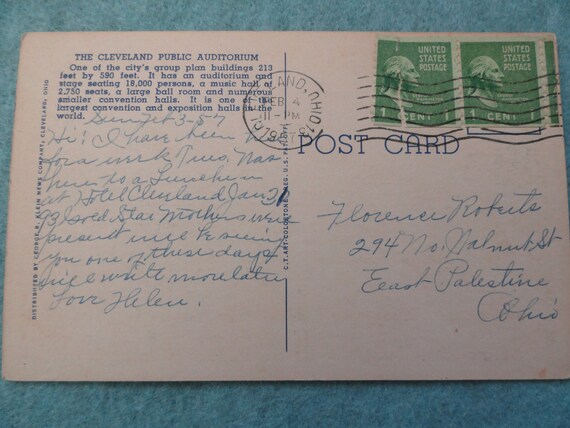 THE CLEVELAND PUBLIC AUDITORIUM
One of the city's group plan buildings 213
feet by 590 feet. It has an auditorium and
stage seating 18,000 persons, a music hall of
2,750 seats, a large ball room and numerous
smaller convention halls. It is one of the
largest convention and exposition halls in the
world.
Sun Feb 3-57
Hi: I have been
for a week Tues. Was
here to a Luncheon
at Hotel Cleveland Jan 31
93 Gold Star Mothers were
present will be seeing
you one of these days
will write more later
Love Helen.
DISTRIBUTED BY GEORGE R. KLEIN NEWS COMPANY, CLEVELAND, OHIO
C.T. ART-COLORTONE REG. U.S. PAT. OFF.
CLEVELAND, OHIO
FEB 4
11 - PM
UNITED STATES POSTAGE
1 CENT 1
UNITED STATES POSTAGE
1 CENT 1
POST CARD
Florence Roberts
294 No. Walnut St
East Palestine
Ohio